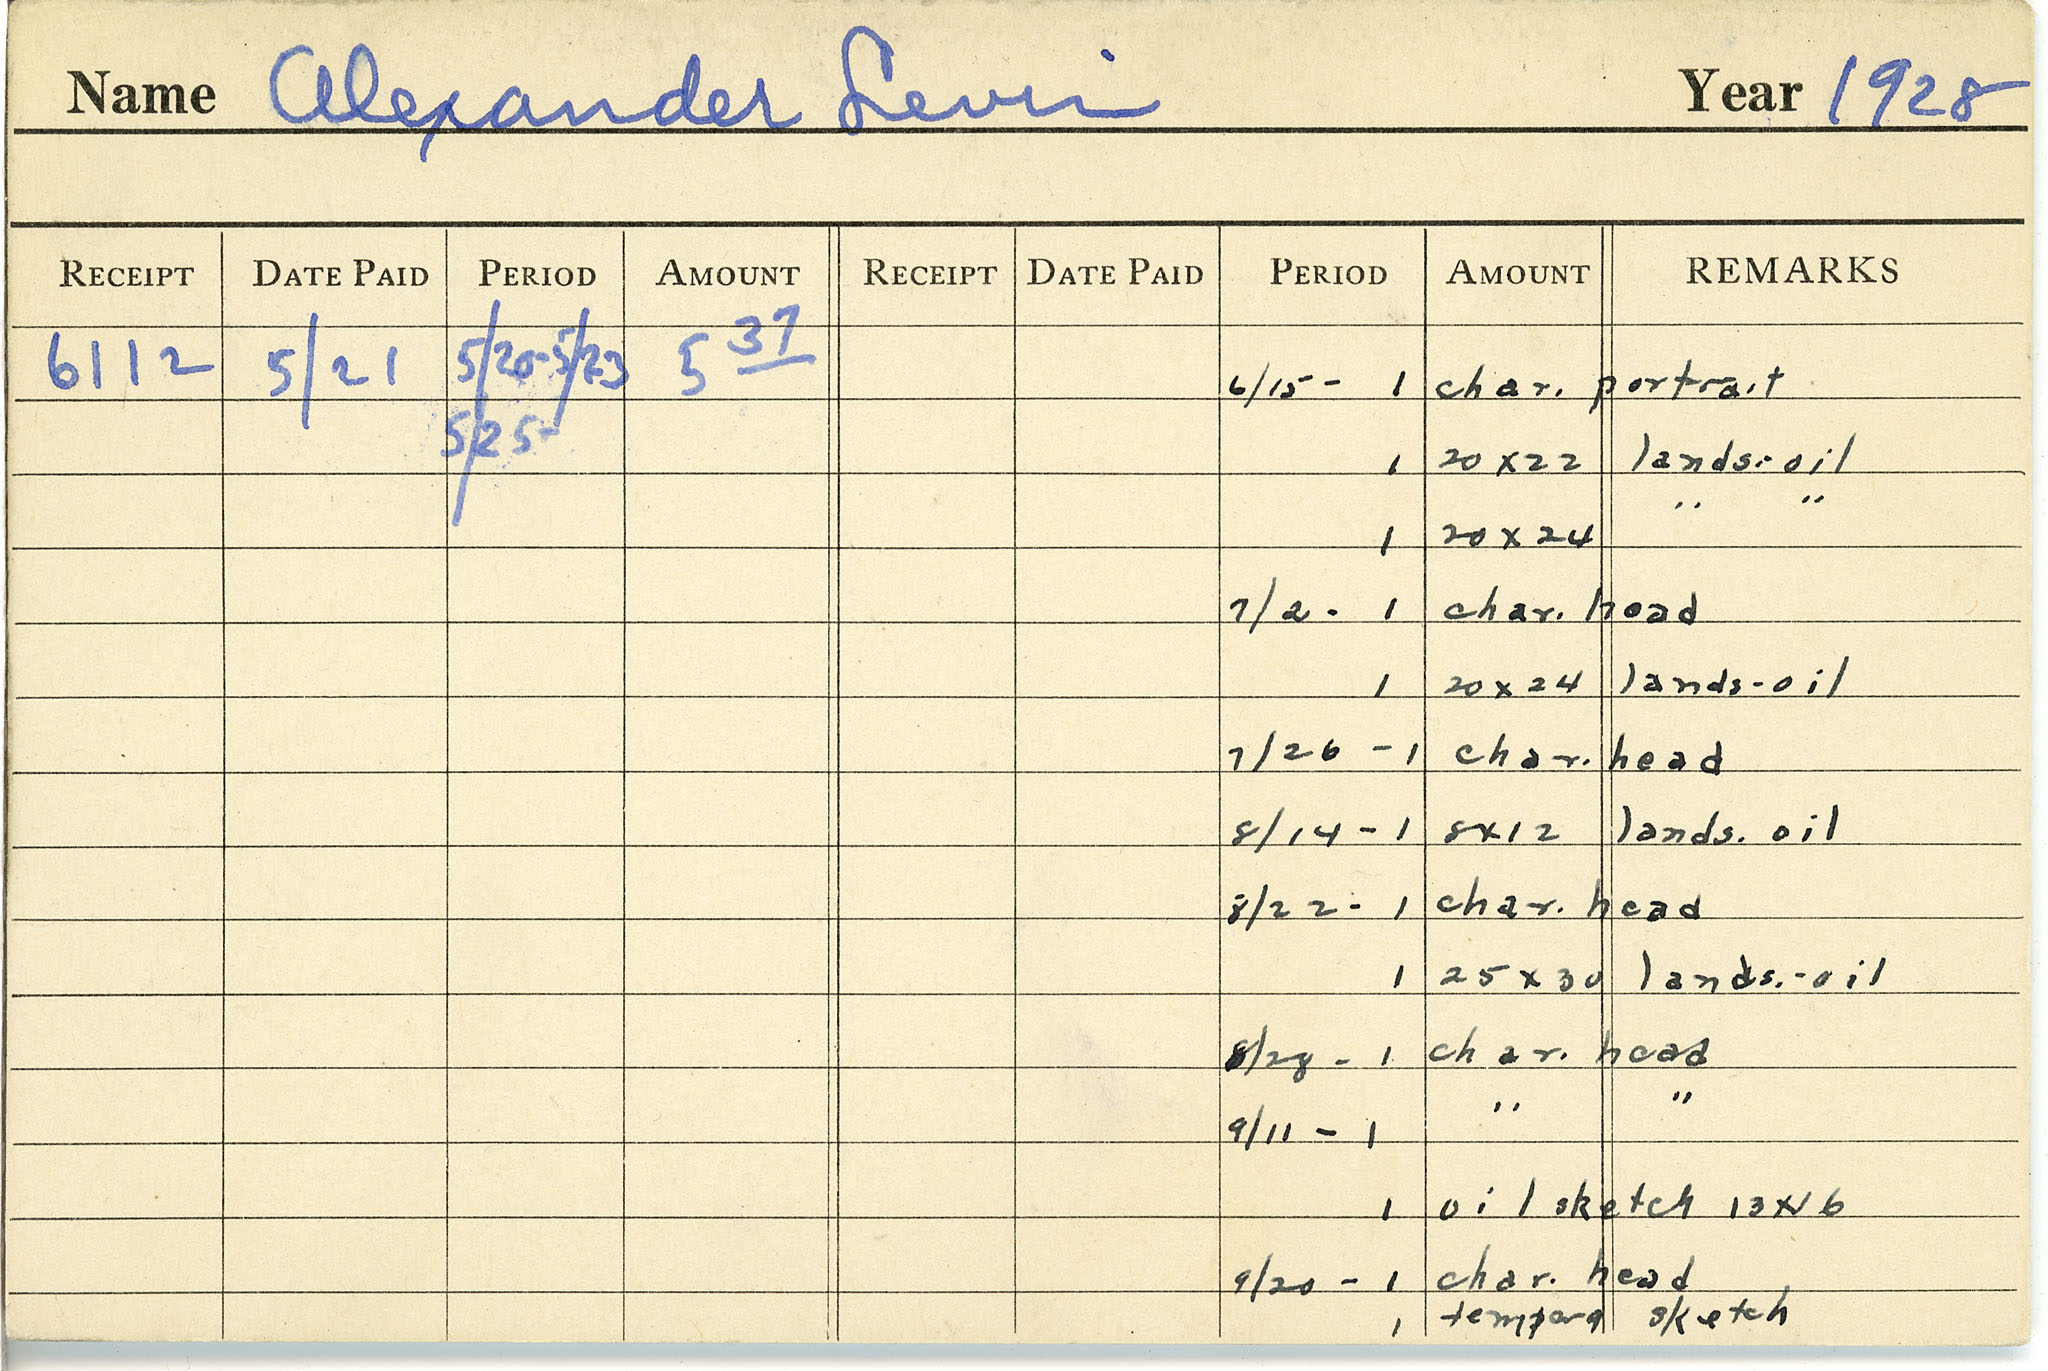 Name Alexander Levin Year 1928
RECEIPT DATE PAID PERIOD AMOUNT RECEIPT DATE PAID PERIOD AMOUNT REMARKS
6112 5/21 5/20-5/23 5 37
5/25
6/15 - 1 char. portrait
1 20 x 22 lands.-oil
1 20 x 24 " "
7/2 - 1 char. head
1 20 x 24 lands-oil
7/26 - 1 char. head
8/14 - 1 8x12 lands. oil
8/22 - 1 char. head
1 25 x 30 lands.-oil
8/28 - 1 char. head
9/11 - 1 " "
1 oil sketch 13x16
9/20 - 1 char. head
1 tempera sketch